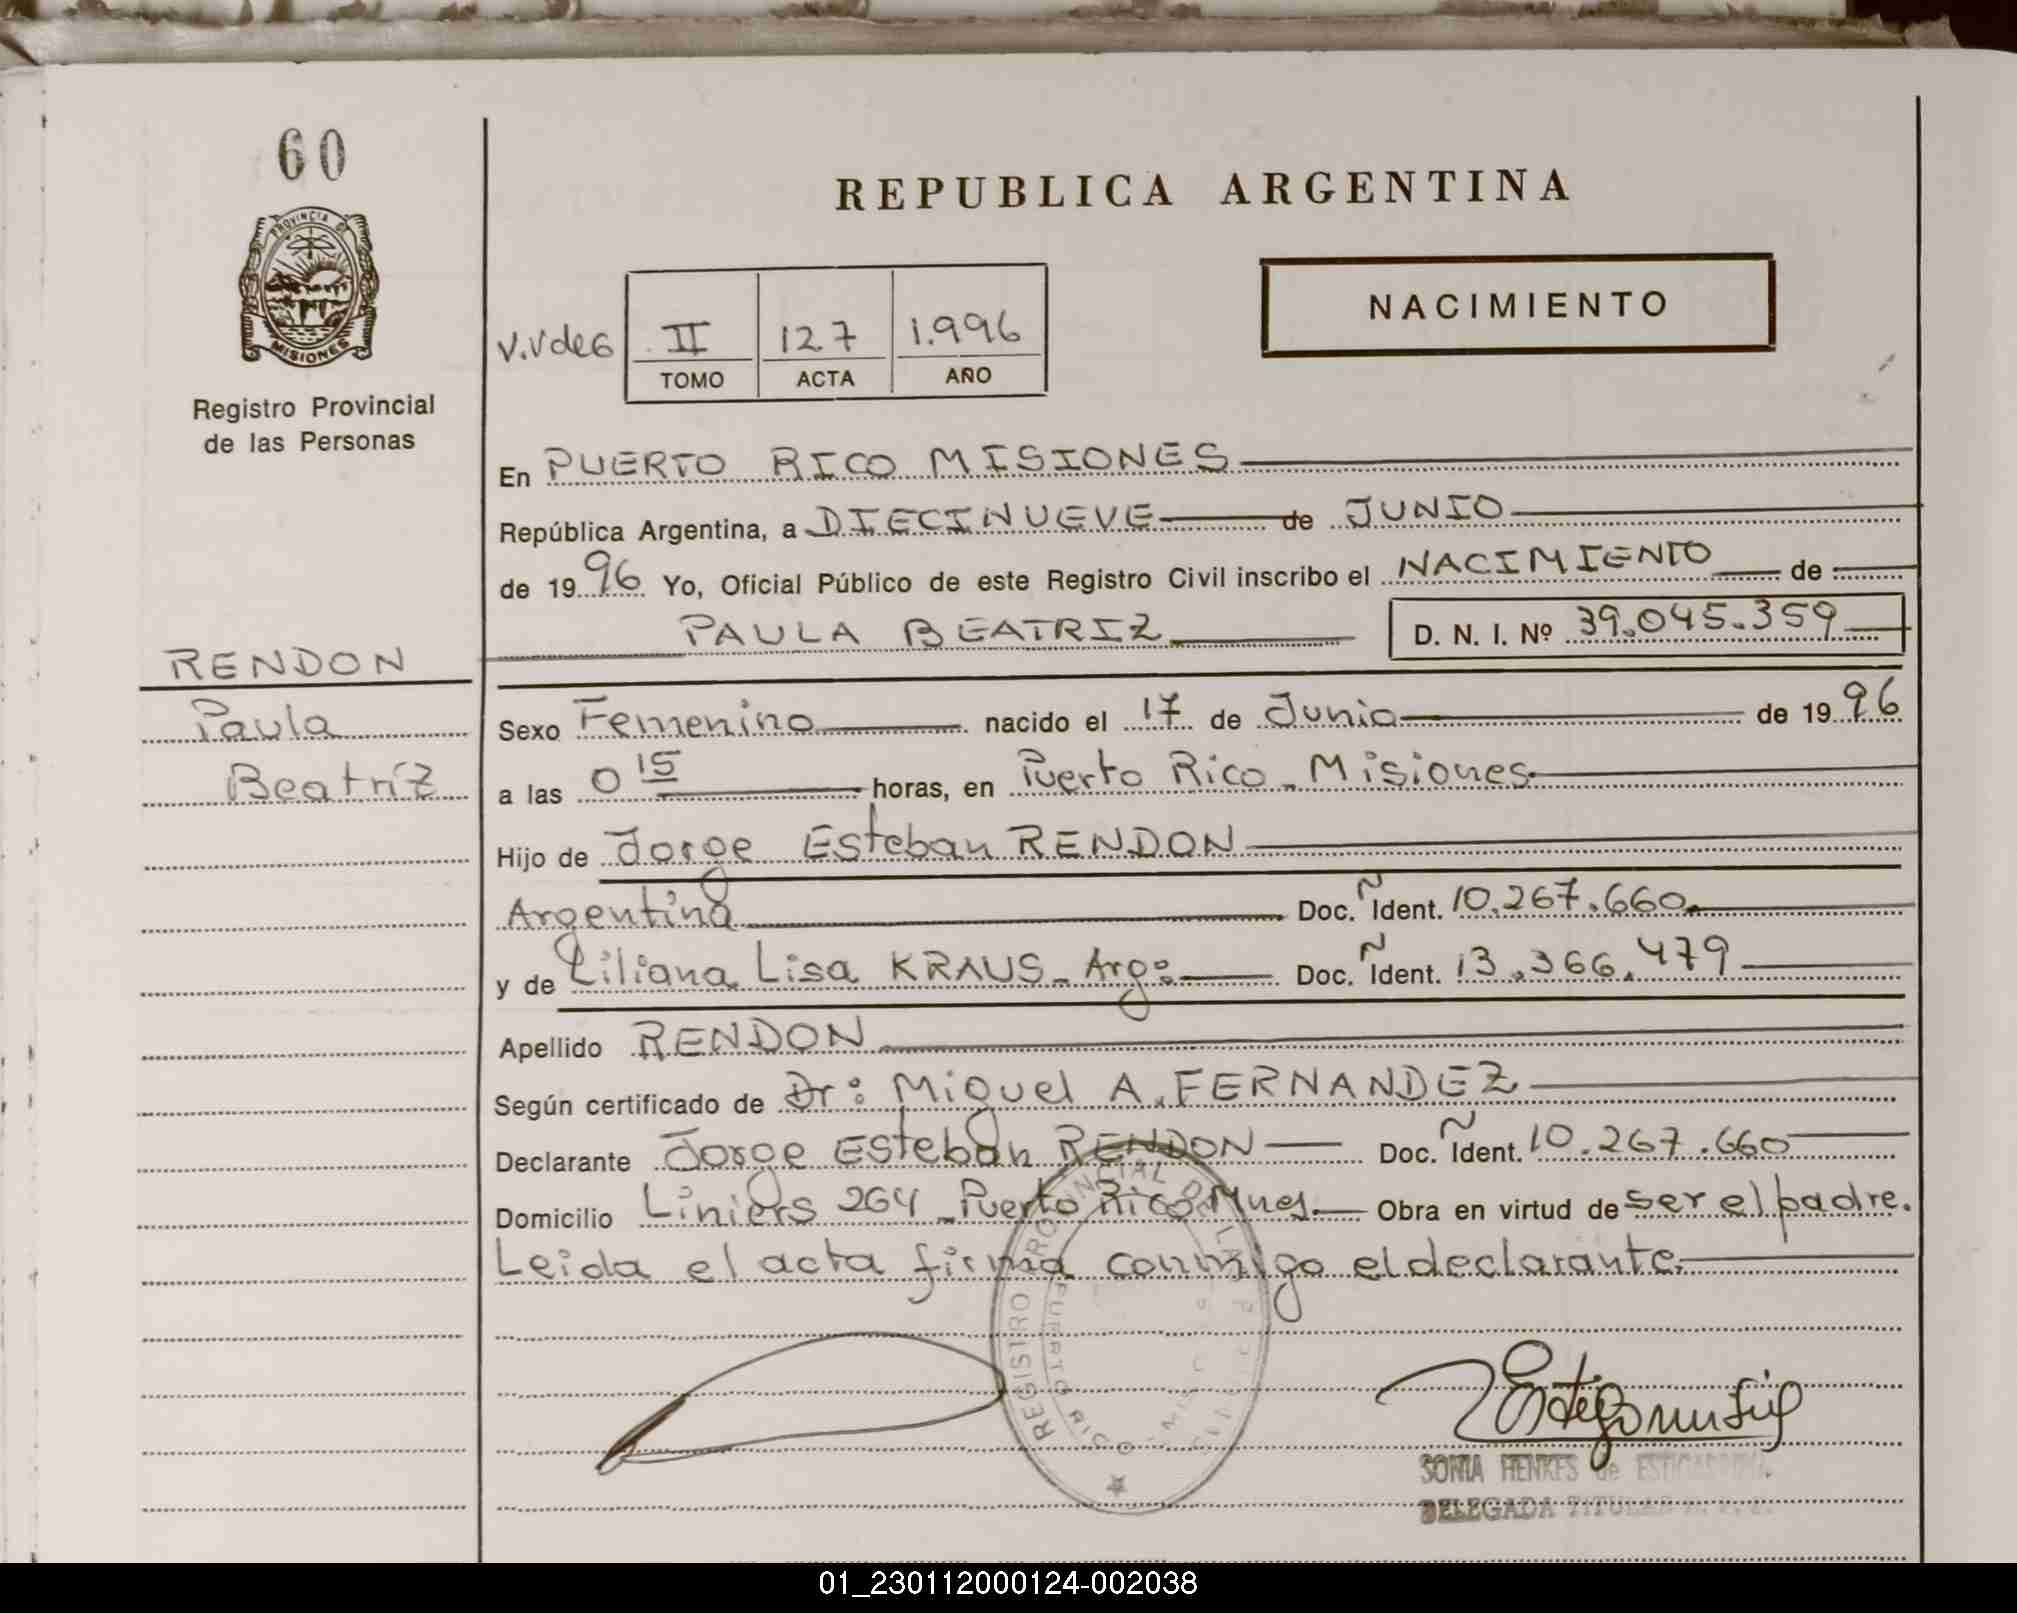 60
REPUBLICA ARGENTINA
PROVINCIA DE
MISIONES
NACIMIENTO
V.Vdes II 127 1.996
TOMO ACTA AÑO
Registro Provincial
de las Personas
En PUERTO RICO MISIONES
República Argentina, a DIECINUEVE de JUNIO
de 19 96 Yo, Oficial Público de este Registro Civil inscribo el NACIMIENTO de
PAULA BEATRIZ D. N. I. Nº 39.045.359
RENDON
Paula
Beatríz
Sexo Femenino nacido el 17 de Junio de 19 96
a las 0 15 horas, en Puerto Rico - Misiones
Hijo de Jorge Esteban RENDON
Argentina Doc. Ident. 10.267.660
y de Liliana Lisa KRAUS - Arg: Doc. Ident. 13.366.479
Apellido RENDON
Según certificado de Dr: Miguel A. FERNANDEZ
Declarante Jorge Esteban RENDON Doc. Ident. 10.267.660
Domicilio Liniers 264 - Puerto Rico Mnes. Obra en virtud de ser el padre.
Leida el acta firma conmigo el declarante.
REGISTRO PROVINCIAL DE LAS
PUERTO RICO
SONIA HENKES de
DELEGADA TITULAR
01_230112000124-002038